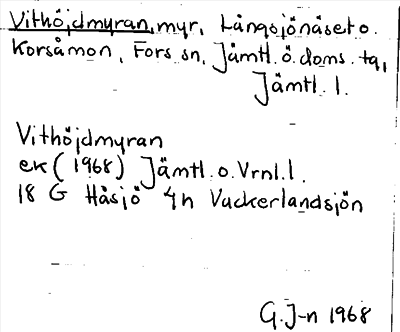 Vithöjdmyran, myr, Långsjönäset o.
Korsåmon, Fors sn, Jämtl. ö. doms. tq,
Jämtl. l.
Vithöjdmyran
ek (1968) Jämtl. o. Vrnl. l.
18 G Håsjö 4h Vackerlandsjön
G. J-n 1968